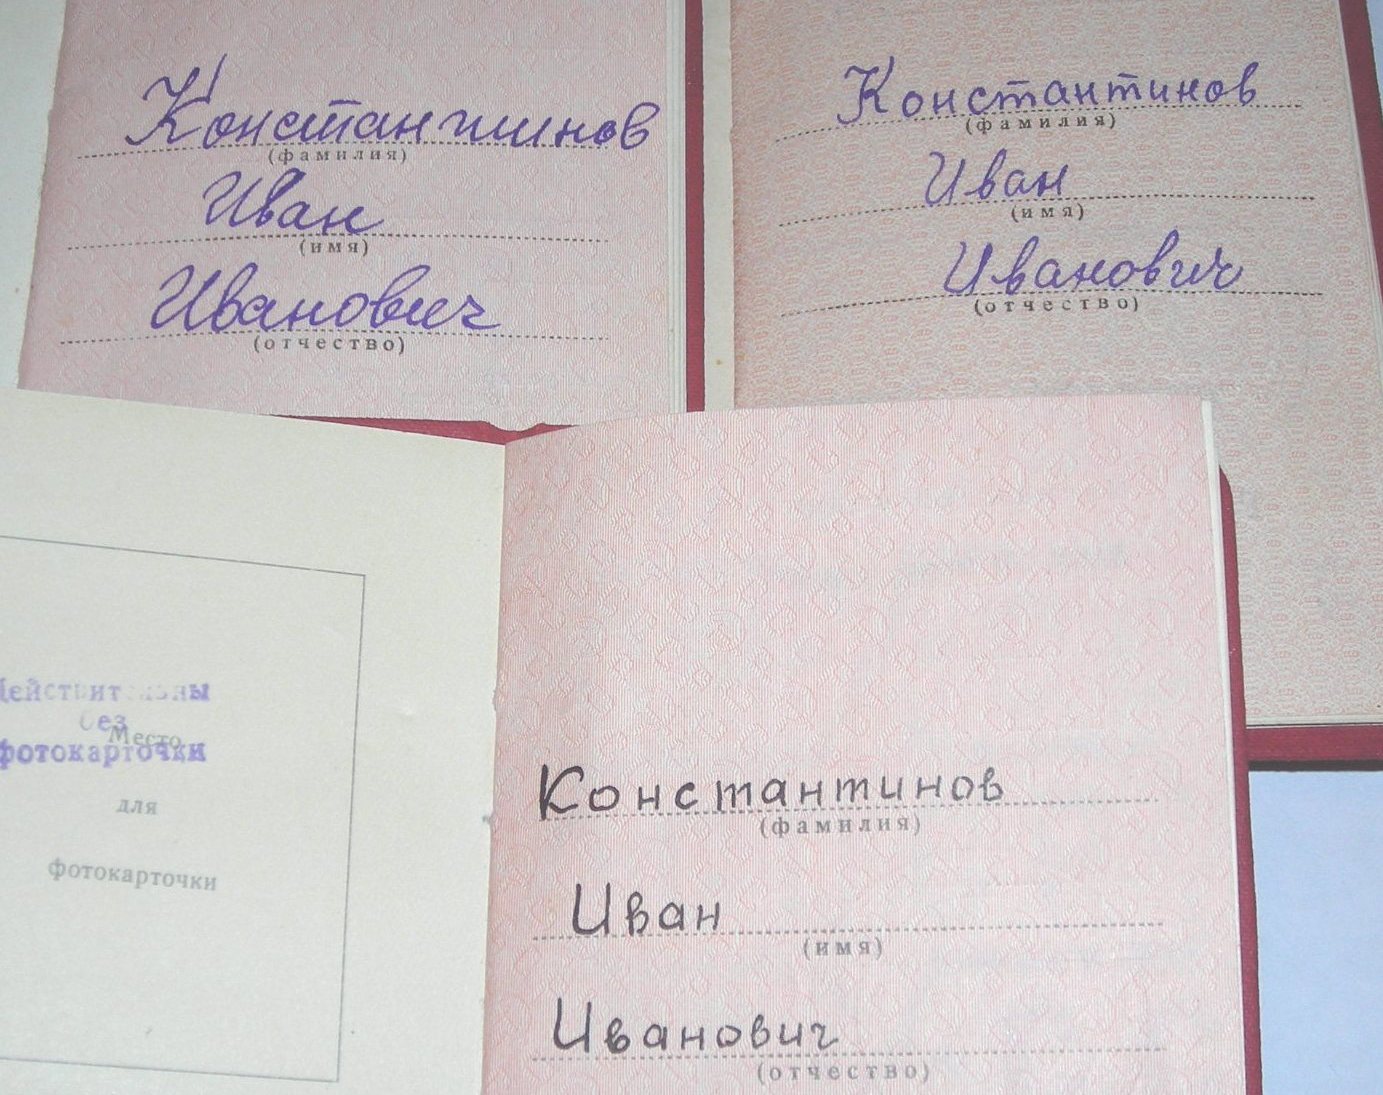 Константинов
(фамилия)
Иван
(имя)
Иванович
(отчество)
Константинов
(фамилия)
Иван
(имя)
Иванович
(отчество)
Действительны
без
фотокарточки
Место
для
фотокарточки
Константинов
(фамилия)
Иван
(имя)
Иванович
(отчество)